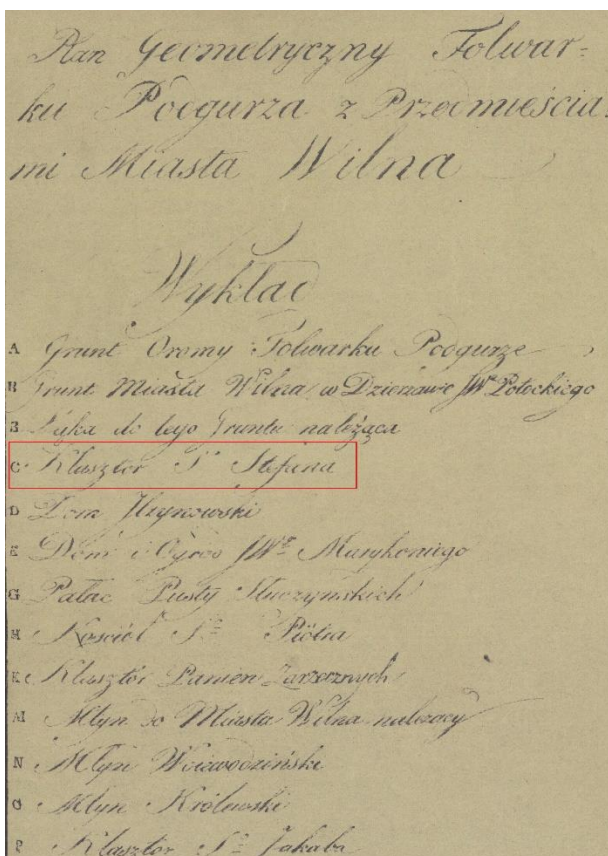 Plan Geometryczny Folwar-
ku Podgurza z Przedmieścia.
mi Miasta Wilna
Wykład
A Grunt Oromy Folwarku Podgurze
B Grunt Miasta Wilna w Dzierżawie JW Potockiego
3 Łąka do tego Gruntu należąca
C Klasztor S Stefana
D Dom
E Dom i Ogrod JW
G Pałac Pusty Słuczynskich
H Kosciół S Piótra
K Klasztór Panien Zarzecznych
M Młyn do Miasta Wilna należący
N Młyn Woiewodziński
O Młyn Królewski
P Klasztor S Jakuba